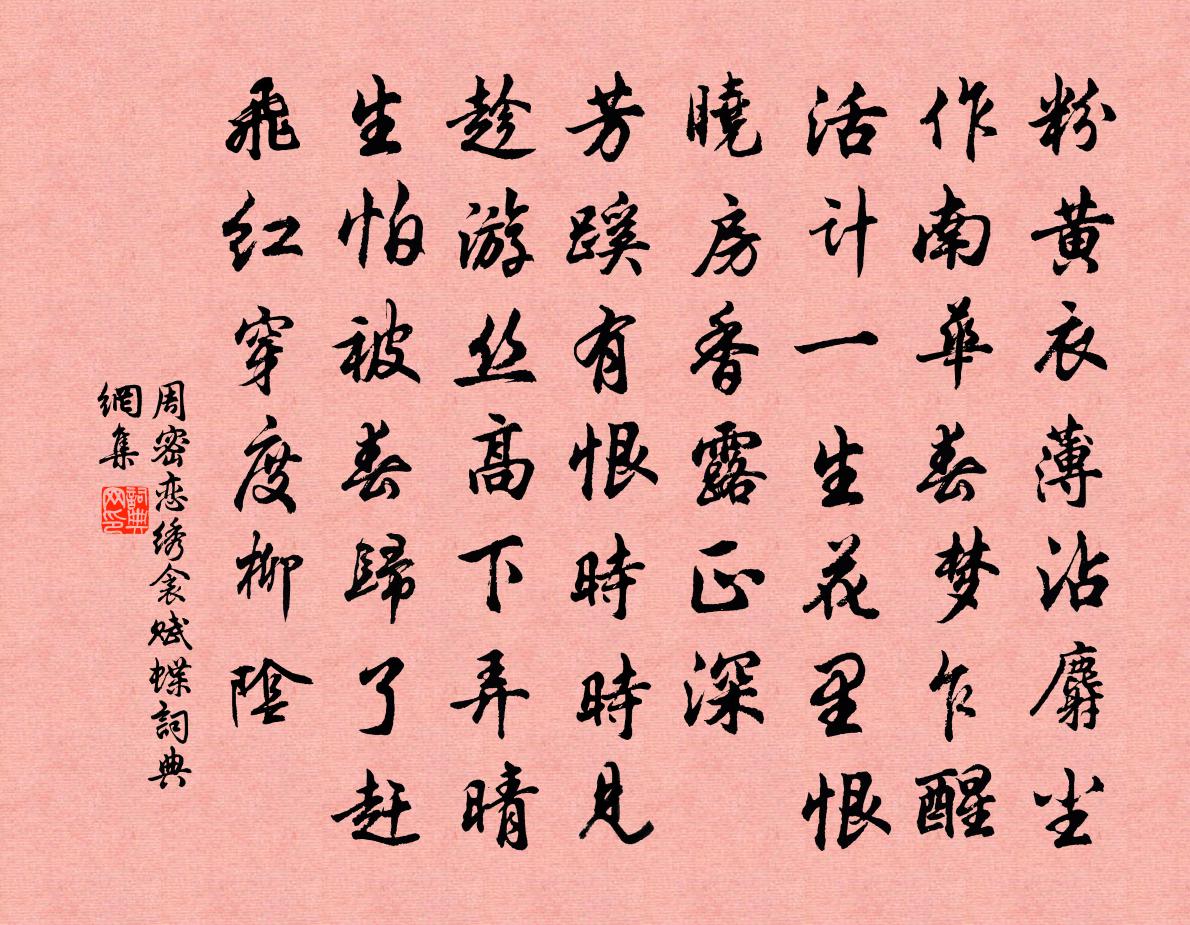 粉黄衣薄沾麝尘
作南華春梦乍醒
活计一生花里恨
曉房香露正深
芳蹊有恨時時见
趁游丝高下弄晴
生怕被春歸了赶
飛红穿度柳陰
周密恋绣衾赋蝶詞典
網集
詞典
网印